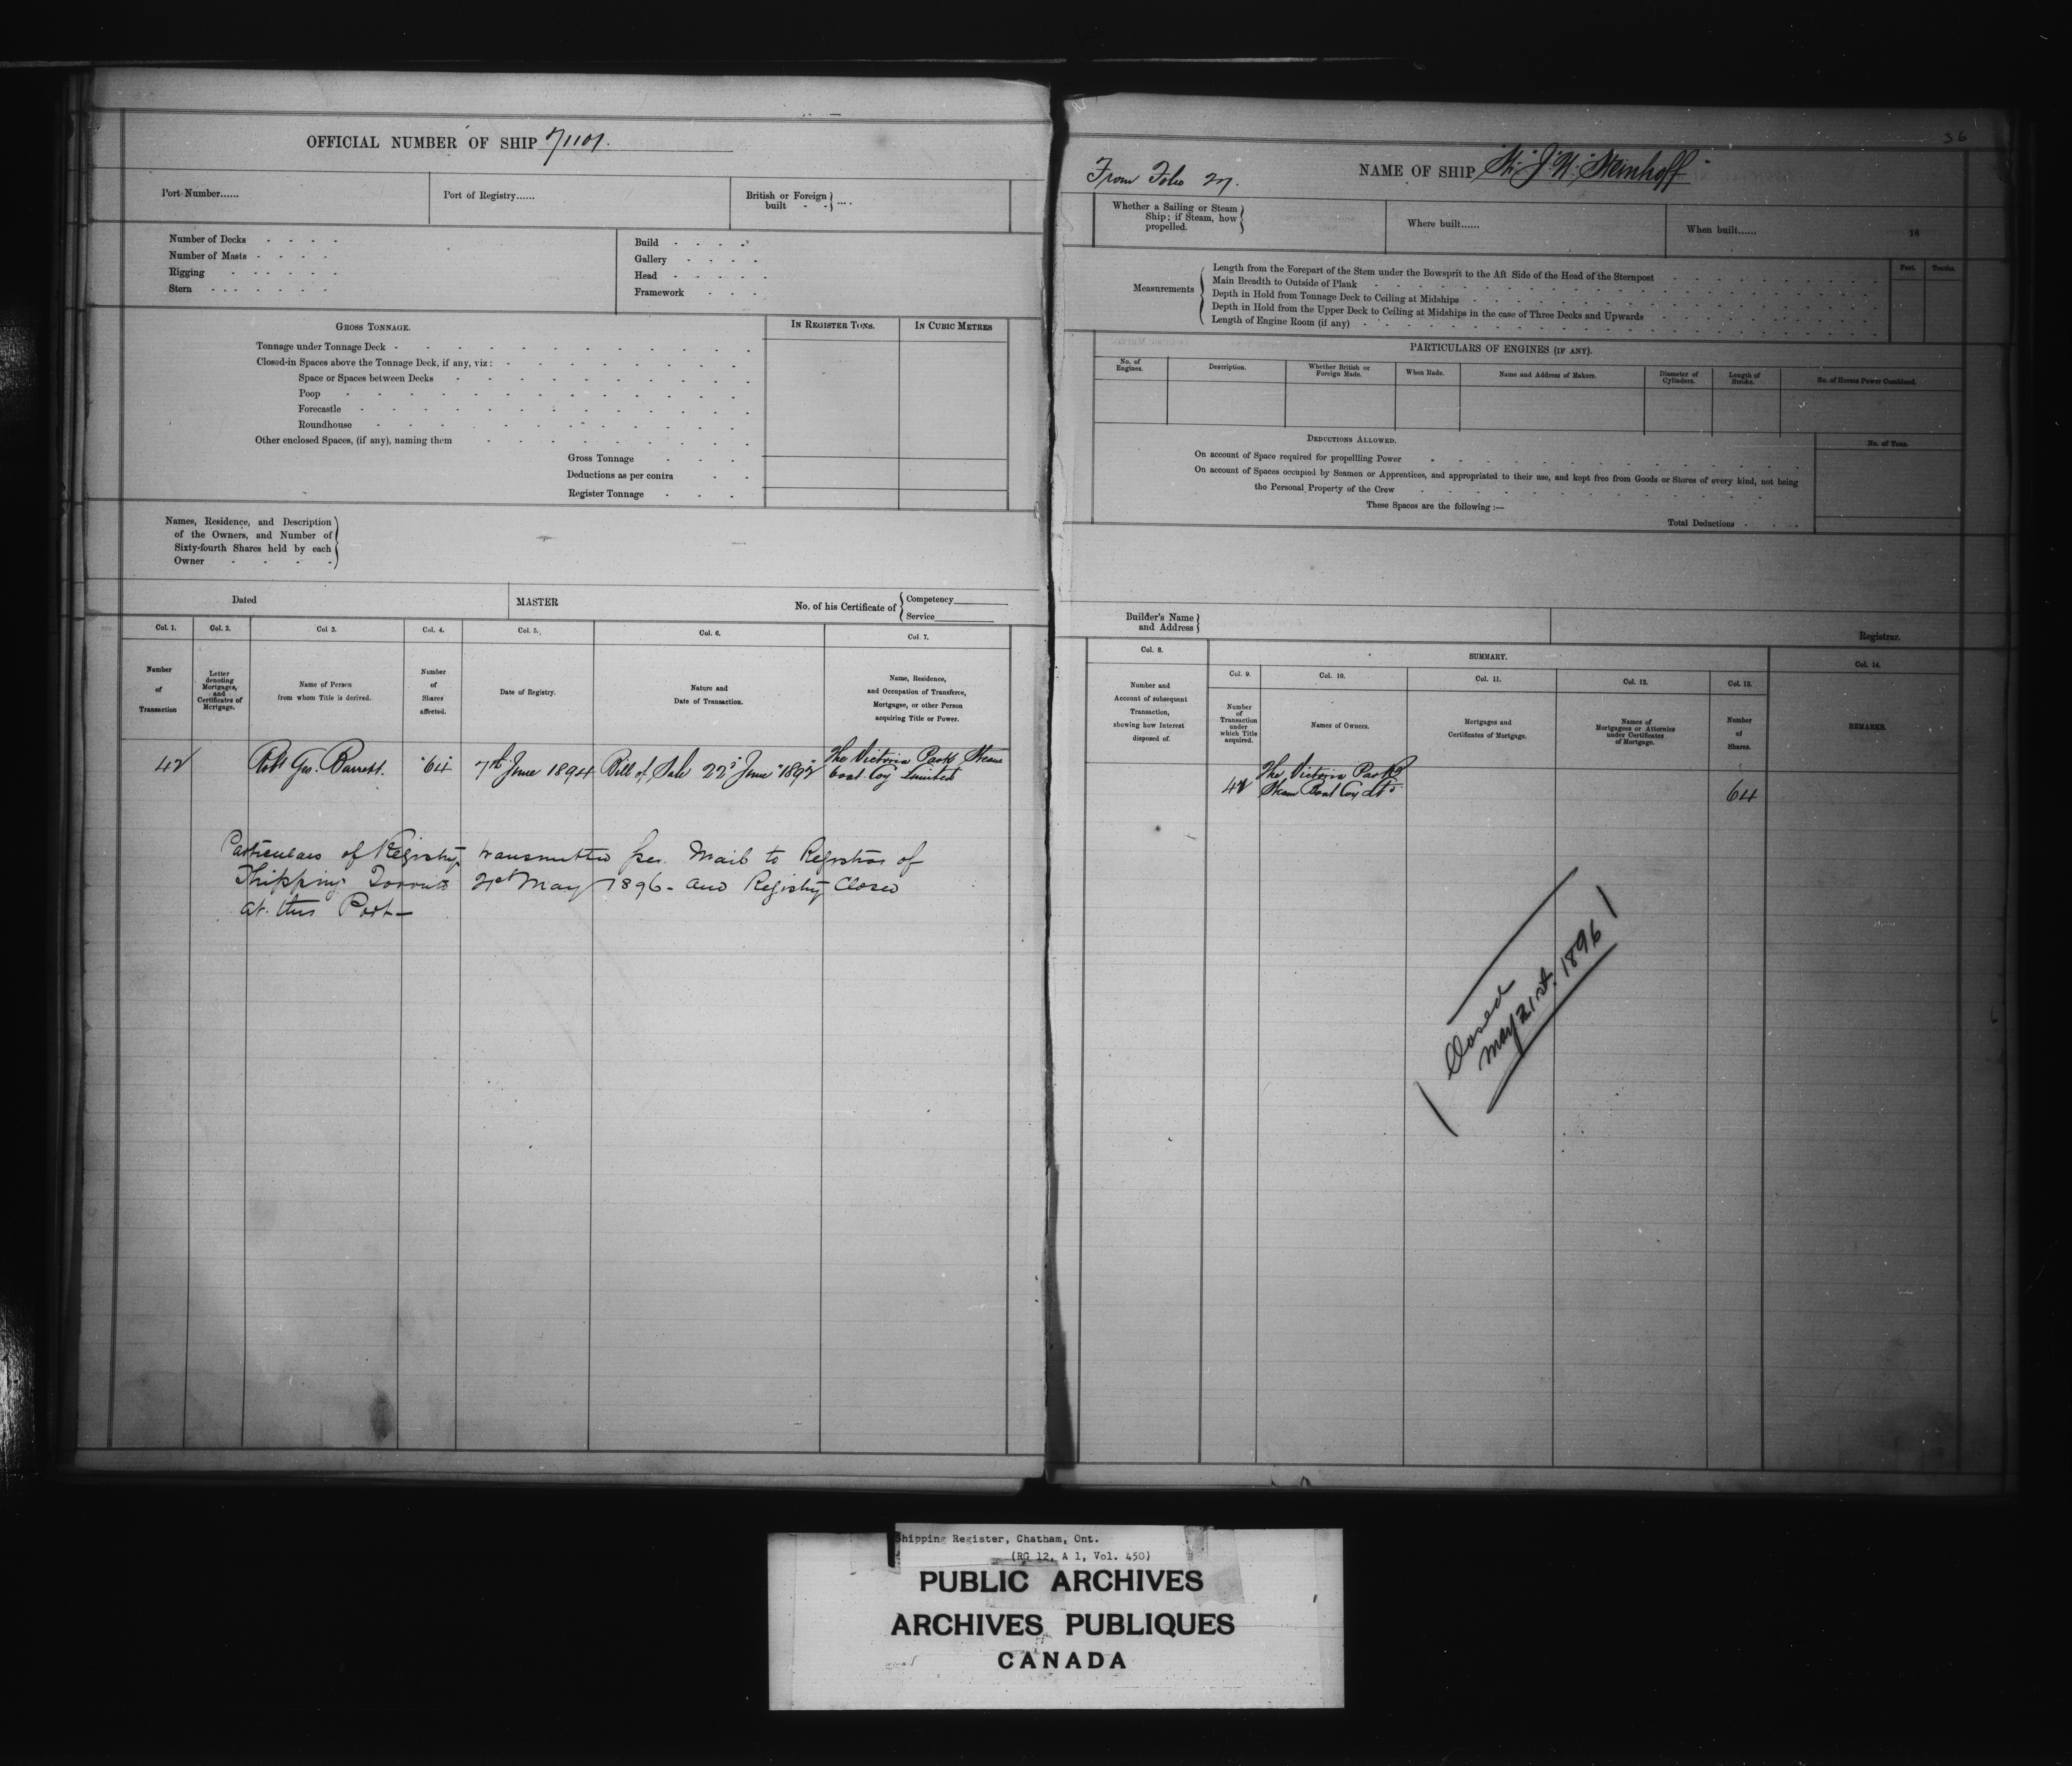 OFFICIAL NUMBER OF SHIP 71101.
Port Number......
Port of Registry......
British or Foreign
built - - } ....
Number of Decks - - - -
Number of Masts - - - -
Rigging - - - - -
Stern - - - - - -
Build - - - -
Gallery - - - -
Head - - - - -
Framework - - -
GROSS TONNAGE.
IN REGISTER TONS.
IN CUBIC METRES
Tonnage under Tonnage Deck
Closed-in Spaces above the Tonnage Deck, if any, viz:
Space or Spaces between Decks
Poop
Forecastle
Roundhouse
Other enclosed Spaces, (if any), naming them
Gross Tonnage
Deductions as per contra
Register Tonnage
Names, Residence, and Description
of the Owners, and Number of
Sixty-fourth Shares held by each
Owner - - - -
Dated
MASTER
No. of his Certificate of { Competency
Service
Col. 1.
Col. 2.
Col 3.
Col. 4.
Col. 5.
Col. 6.
Col. 7.
Number
of
Transaction
Letter
denoting
Mortgages,
and
Certificates of
Mortgage.
Name of Person
from whom Title is derived.
Number
of
Shares
affected.
Date of Registry.
Nature and
Date of Transaction.
Name, Residence,
and Occupation of Transferee,
Mortgagee, or other Person
acquiring Title or Power.
42
Robt Geo. Barrett.
"64"
7th June 1894
Bill of Sale 22d June "1892"
The Victoria Park Steam
boat Coy Limited
Particulars of Registry transmitted per. Mail to Registrar of
Shipping Toronto 21st May 1896 - and Registry Closed
at this Port -
36
From Folio 27.
NAME OF SHIP Str "J. W. Steinhoff"
Whether a Sailing or Steam
Ship; if Steam, how
propelled.
Where built......
When built......
18
Measurements
Length from the Forepart of the Stem under the Bowsprit to the Aft Side of the Head of the Sternpost
Main Breadth to Outside of Plank
Depth in Hold from Tonnage Deck to Ceiling at Midships
Depth in Hold from the Upper Deck to Ceiling at Midships in the case of Three Decks and Upwards
Length of Engine Room (if any)
Feet.
Tenths.
PARTICULARS OF ENGINES (IF ANY).
No. of
Engines.
Description.
Whether British or
Foreign Made.
When Made.
Name and Address of Makers.
Diameter of
Cylinders.
Length of
Stroke.
No. of Horses Power Combined.
DEDUCTIONS ALLOWED.
No. of Tons.
On account of Space required for propellling Power
On account of Spaces occupied by Seamen or Apprentices, and appropriated to their use, and kept free from Goods or Stores of every kind, not being
the Personal Property of the Crew
These Spaces are the following :—
Total Deductions
Builder's Name
and Address
Registrar.
Col. 8.
SUMMARY.
Col. 14.
Col. 9.
Col. 10.
Col. 11.
Col. 12.
Col. 13.
Number and
Account of subsequent
Transaction,
showing how Interest
disposed of.
Number
of
Transaction
under
which Title
acquired.
Names of Owners.
Mortgages and
Certificates of Mortgage.
Names of
Mortgagees or Attornies
under Certificates
of Mortgage.
Number
of
Shares.
REMARKS.
42
The Victoria Park
Steam Boat Coy Ltd
64
Closed
May 21st. 1896
Shipping Register, Chatham, Ont.
(RG 12, A 1, Vol. 450)
PUBLIC ARCHIVES
ARCHIVES PUBLIQUES
CANADA